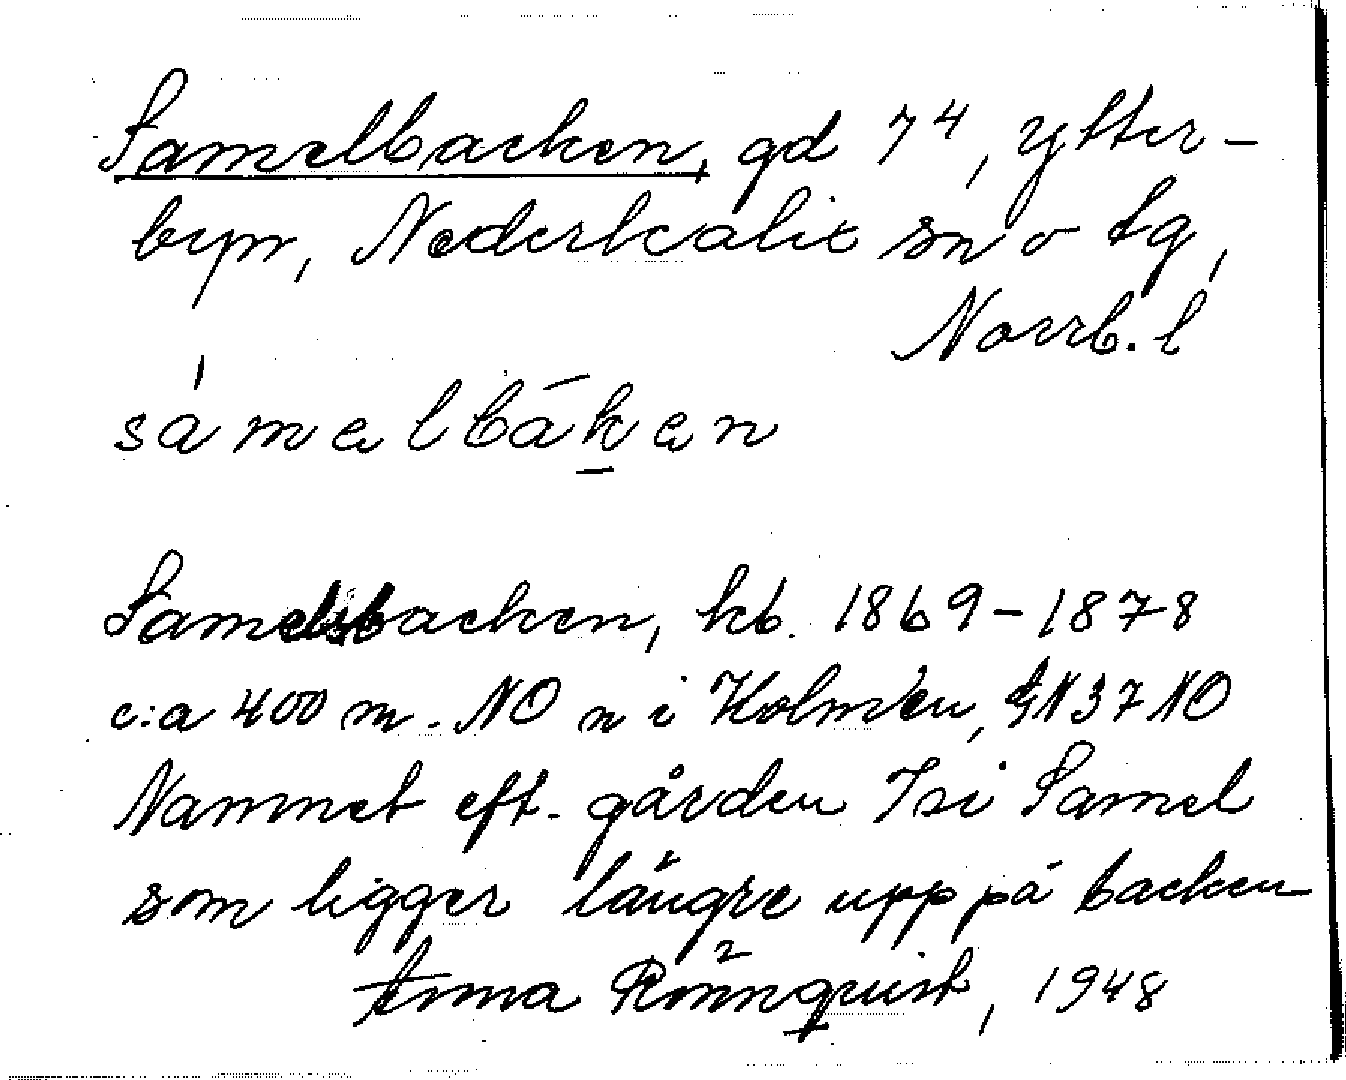 Samelbacken, gd 7⁴, Ytter-
byn, Nederkalix sn o tg,
Norrb. l
sámelbāken
Samelsbacken, kb. 1869-1878
c:a 400 m. NO n i Holmen, 37 NO
Namnet eft. gården Isi Samel
som ligger längre upp på backen
Anna Rönnquist, 1948